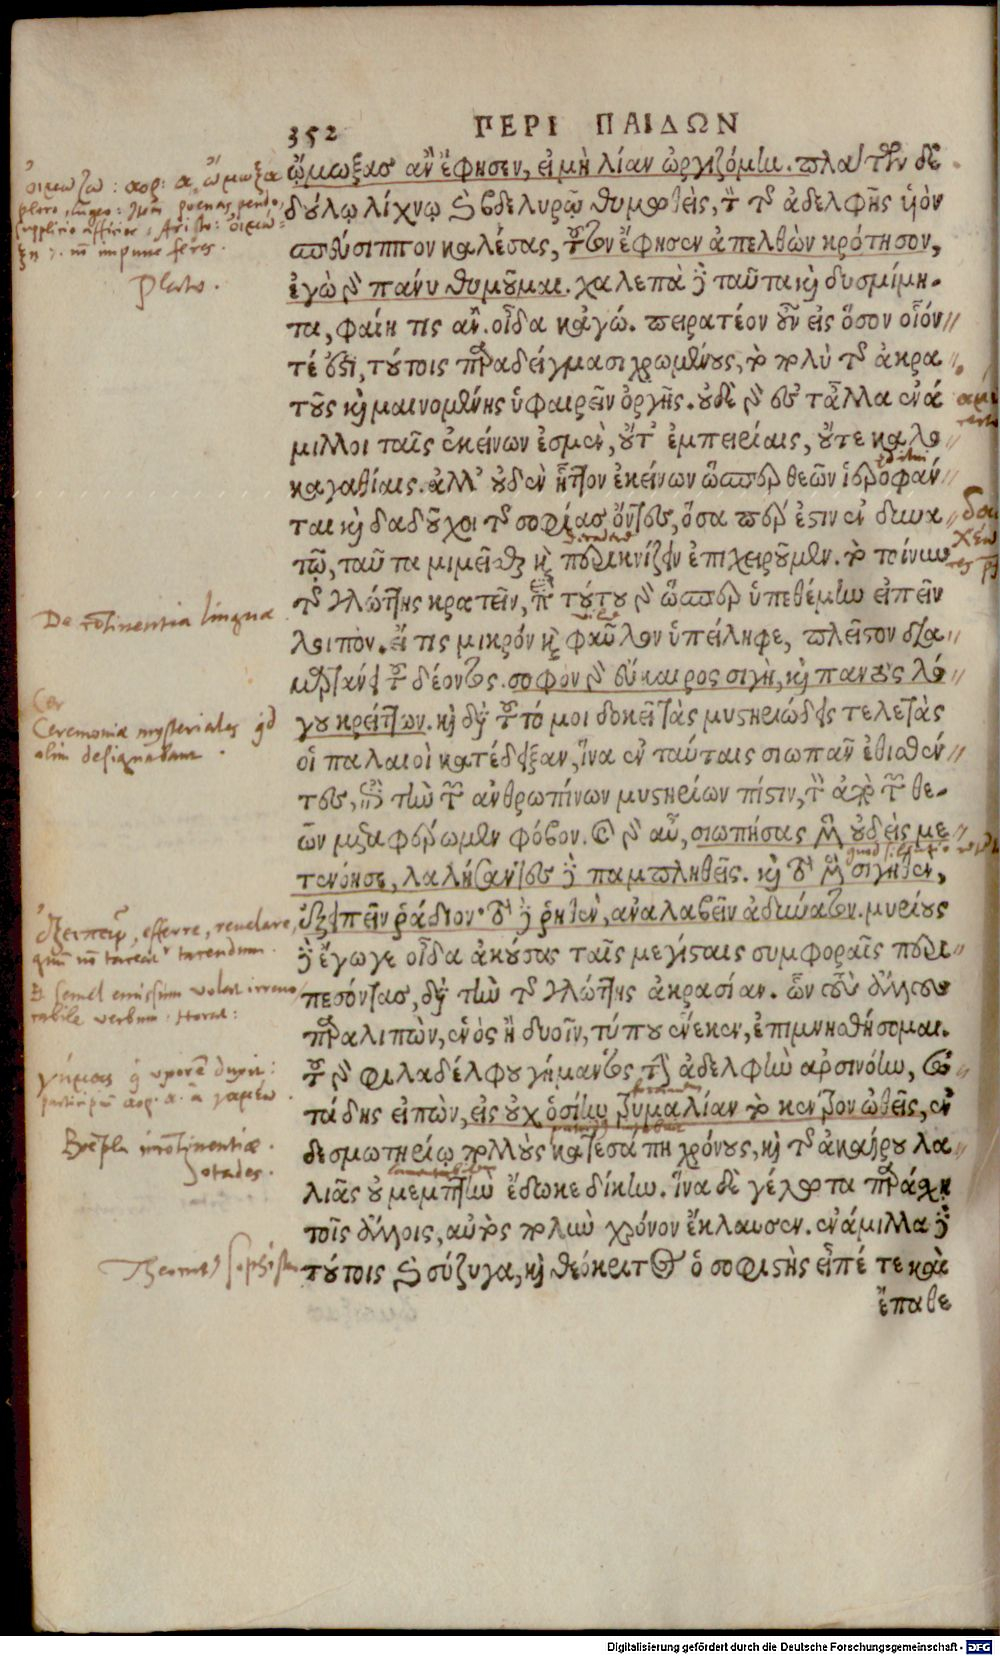 352 ΠΕΡΙ ΠΑΙΔΩΝ
ᾤμωξας ἂν ἔφησεν, εἰ μὴ λίαν ὠργιζόμην. πλάτων δὲ
δούλῳ λίχνῳ καὶ βδελυρῷ θυμωθεὶς, τὸν τῆς ἀδελφῆς υἱὸν
σπεύσιππον καλέσας, τοῦτον ἔφησεν ἀπελθὼν κρότησον,
ἐγὼ γὰρ πάνυ θυμοῦμαι. χαλεπὰ δὲ ταῦτα καὶ δυσμίμη-
τα, φαίη τις ἄν. οἶδα κἀγώ. πειρατέον οὖν εἰς ὅσον οἷόν
τέ ἐστι, τούτοις παραδείγμασι χρωμένους, τὸ πολὺ τῆς ἀκρα
τοῦς καὶ μαινομένης ὑφαιρεῖν ὀργῆς. οὐδὲ γὰρ εἰς τἆλλα ἐνά
μιλλοι ταῖς ἐκείνων ἐσμὲν, οὔτ' ἐμπειρίαις, οὔτε καλο
καγαθίαις. ἀλλ' οὐδὲν ἧττον ἐκείνων ὥσπερ θεῶν ἱεροφάν
ται καὶ δαδοῦχοι τῆς σοφίας ὄντες, ὅσα περ ἐστιν ἐν δυνα
τῷ, ταῦτα μιμεῖσθαι καὶ περικνίζειν ἐπιχειροῦμεν. τὸ τοίνυν
τῆς γλώττης κρατεῖν, περὶ τούτου γὰρ ὥσπερ ὑπεθέμην εἰπεῖν
λοιπὸν. εἴ τις μικρόν καὶ φαῦλον ὑπείληφε, πλεῖστον δια
μαρτάνει τοῦ δέοντος. σοφὸν γὰρ εὔκαιρος σιγὴ, καὶ παντὸς λό
γου κρείττων. καὶ διὰ τοῦτό μοι δοκεῖ τὰς μυστηριώδεις τελετὰς
οἱ παλαιοὶ κατέδειξαν, ἵνα ἐν ταύταις σιωπᾶν ἐθισθέν
τες, ἐπὶ τὴν τῶν ἀνθρωπίνων μυστηρίων πίστιν, τὸν ἀπὸ τῶν θε-
ῶν μεταφέρωμεν φόβον. καὶ γὰρ αὖ, σιωπήσας μὲν οὐδεὶς με
τενόησε, λαλήσαντες δὲ παμπληθεῖς. καὶ τὸ μὲν σιγηθὲν,
ἐξειπεῖν ῥάδιον· τὸ δὲ ῥηθὲν, ἀναλαβεῖν ἀδύνατον. μυρίους
δὲ ἔγωγε οἶδα ἀκούσας ταῖς μεγίσταις συμφοραῖς περι
πεσόντας, διὰ τὴν τῆς γλώττης ἀκρασίαν. ὧν τοὺς ἄλλους
παραλιπὼν, ἑνὸς ἢ δυοῖν, τύπου ἕνεκεν, ἐπιμνησθήσομαι.
τοῦ γὰρ φιλαδέλφου γήμαντος τὴν ἀδελφὴν ἀρσινόην, σω
τάδης εἰπὼν, εἰς οὐχ ὁσίην τρυμαλίαν τὸ κέντρον ὠθεῖς, ἐν
δεσμωτηρίῳ πολλοὺς κατεσάπη χρόνους, καὶ τῆς ἀκαίρου λα
λιᾶς οὐ μεμπτὴν ἔδωκε δίκην. ἵνα δὲ γέλωτα παράσχῃ
τοῖς ἄλλοις, αὐτὸς πολὺν χρόνον ἔκλαυσεν. ἐνάμιλλα δὲ
τούτοις καὶ σύζυγα, καὶ θεόκριτος ὁ σοφιστὴς εἶπέ τε καὶ
ἔπαθε
Plato.
De continentia lingua
Ceremonia mysteriales qd
olim designabant.
ἐξειπεῖν, efferre, revelare,
Et semel emissum volat irreuo
cabile verbum. Horat:
Exēpla incōtinentiæ.
Sotades.
Theocrit9 sophista
Digitalisierung gefördert durch die Deutsche Forschungsgemeinschaft - DFG